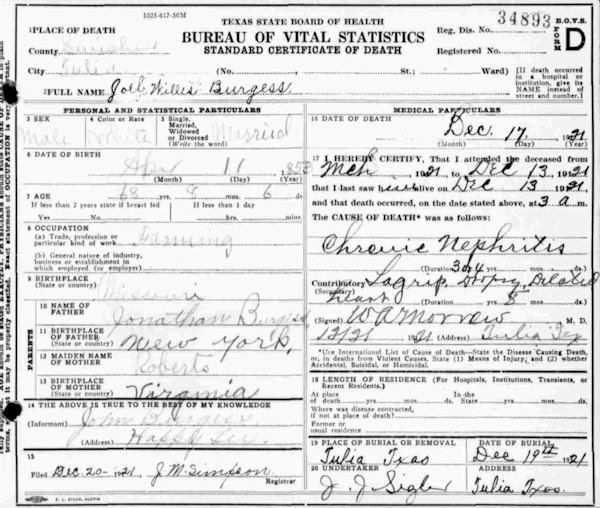 1025-617-50M
TEXAS STATE BOARD OF HEALTH
BUREAU OF VITAL STATISTICS
STANDARD CERTIFICATE OF DEATH
34893
B.O.V.S. FORM D
Reg. Dis. No.
Registered No.
1 PLACE OF DEATH
County
City Tulia (No. St.: Ward)
[If death occurred in a hospital or institution, give its NAME instead of street and number.]
2 FULL NAME Joel Willis Burgess
PERSONAL AND STATISTICAL PARTICULARS
3 SEX Male
4 Color or Race White
5 Single, Married, Widowed or Divorced (Write the word) Married
6 DATE OF BIRTH
Apr 11 1853
(Month) (Day) (Year)
7 AGE 68 ys. 8 mos. 6 ds.
If less than 2 years state if breast fed
If less than 1 day
Yes No hrs. min.
8 OCCUPATION
(a) Trade, profession or particular kind of work Farming
(b) General nature of industry, business or establishment in which employed (or employer)
9 BIRTHPLACE
(State or country) Missouri
PARENTS
10 NAME OF FATHER Jonathan Burgess
11 BIRTHPLACE OF FATHER (State or country) New York,
12 MAIDEN NAME OF MOTHER Roberts
13 BIRTHPLACE OF MOTHER (State or country) Virginia
14 THE ABOVE IS TRUE TO THE BEST OF MY KNOWLEDGE
(Informant) John Burgess
(Address) Happy Tex
15
Filed Dec. 20 - 1921 J. M. Simpson
Registrar
MEDICAL PARTICULARS
16 DATE OF DEATH
Dec. 17 1921
(Month) (Day) (Year)
17 I HEREBY CERTIFY, That I attended the deceased from
Mch 1921, to Dec 13 1921
that I last saw him alive on Dec 13 1921,
and that death occurred, on the date stated above, at 3 a m.
The CAUSE OF DEATH* was as follows:
Chronic Nephritis
(Duration) 3 or 4 yrs. mos. ds.
Contributory (Secondary) Lagrip, Dropsy, Dilated
heart (Duration) yrs. 8 mos. ds.
(Signed) W A Morrow M. D.
12/21 1921 (Address) Tulia Tex
*Use International List of Cause of Death—State the Disease Causing Death, or, in deaths from Violent Causes, State (1) Means of Injury; and (2) whether Accidental, Suicidal, or Homicidal.
18 LENGTH OF RESIDENCE (For Hospitals, Institutions, Transients, or Recent Residents.)
At place of death yrs. mos. ds. In the State yrs. mos. ds.
Where was disease contracted, if not at place of death?
Former or usual residence
19 PLACE OF BURIAL OR REMOVAL
DATE OF BURIAL
Tulia Texas Dec 19th 1921
20 UNDERTAKER
ADDRESS
J. J. Sigler Tulia Texas.